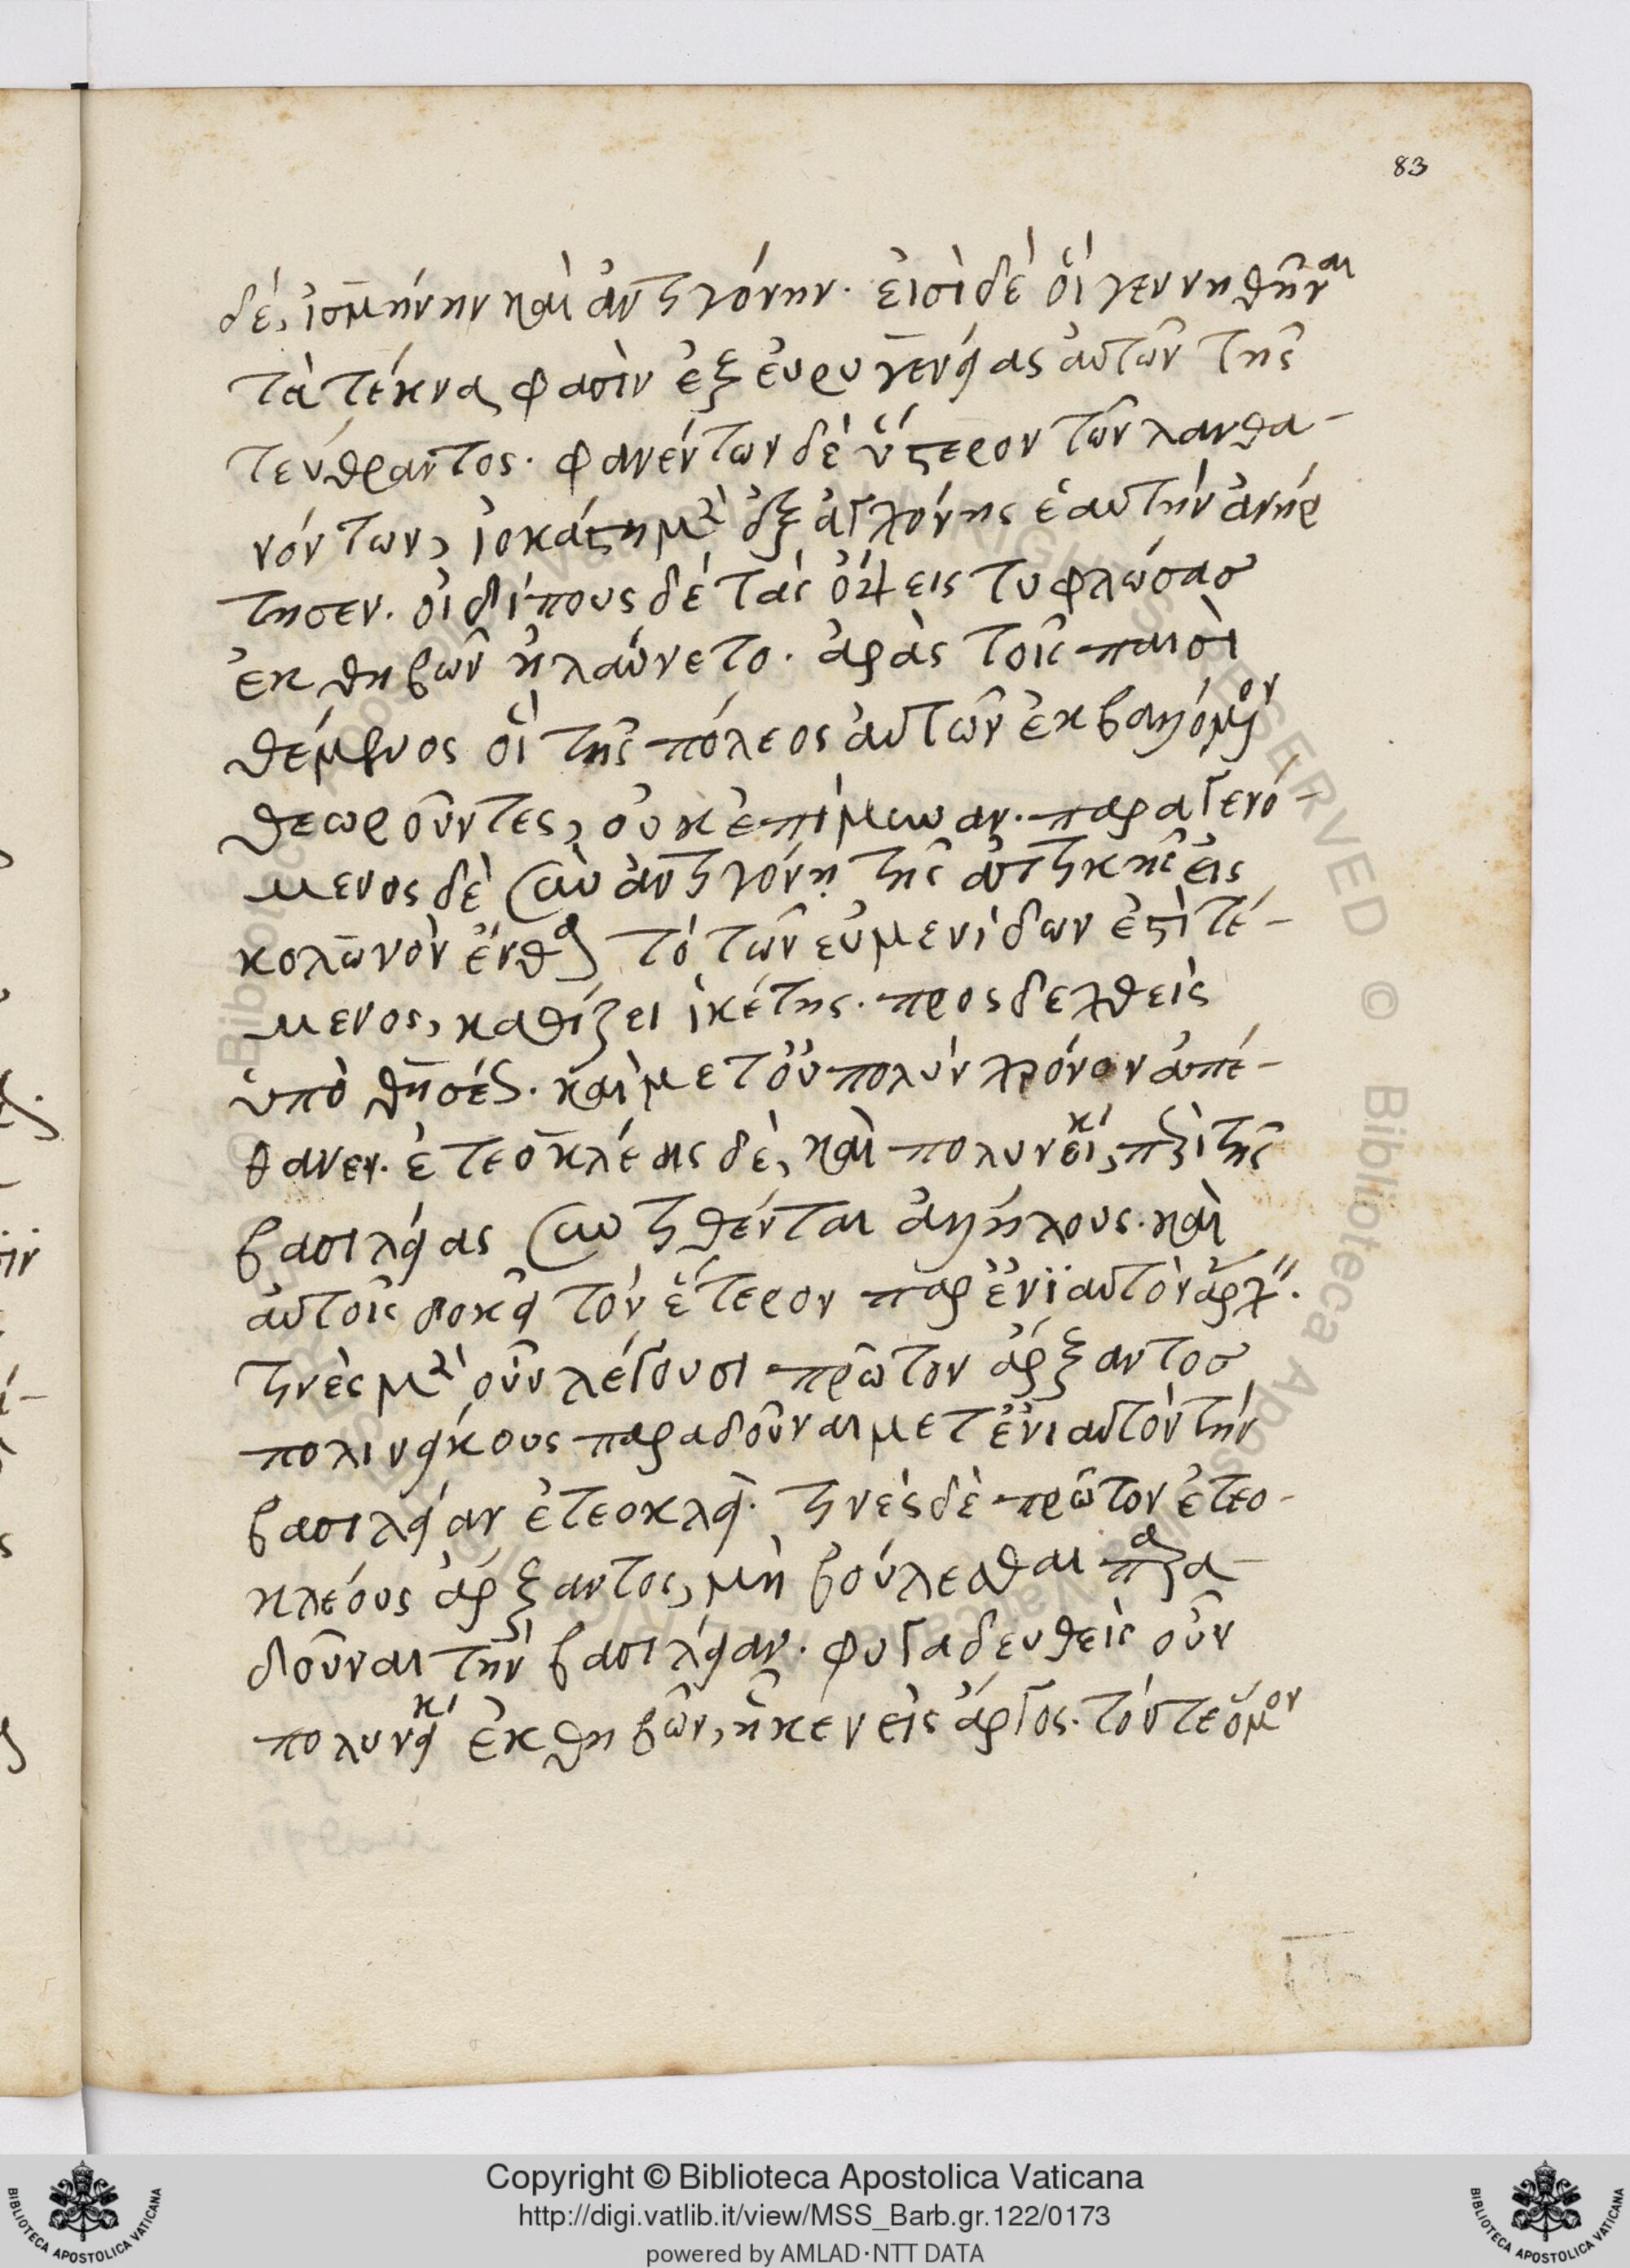 83
δέ, ἰσμήνην καὶ ἀντιγόνην. εἰσὶ δὲ οἳ γεννηθῆναι
τὰ τέκνα φασὶν ἐξ εὐρυγενείας αὐτῶν τῆς
τεύθραντος. φανέντων δὲ ὕστερον τῶν λανθα-
νόντων, ἰοκάστη μὲν ἐξ ἀγχόνης ἑαυτὴν ἀνήρ
τησεν. οἰδίπους δὲ τὰς ὄψεις τυφλώσας
ἐκ θηβῶν ἠλαύνετο. ἀρὰς τοῖς παισὶ
θέμενος οἳ τῆς πόλεος αὐτῶν ἐκβαλλόμενον
θεωροῦντες, οὐκ ἐπήμυναν. παραγενό-
μενος δὲ σὺν ἀντιγόνῃ τῆς ἀττικῆς εἰς
κολωνὸν ἔνθα τὸ τῶν εὐμενίδων ἐστὶ τέ-
μενος, καθίζει ἱκέτης. προσδεχθεὶς
ὑπὸ θησέως. καὶ μετ οὐ πολὺν χρόνον ἀπέ-
θανεν. ἐτεοκλέης δὲ, καὶ πολυνείκης, περὶ τῆς
βασιλείας συντίθενται ἀλλήλους. καὶ
αὐτοῖς δοκεῖ τὸν ἕτερον παρ ἐνϊαυτὸν ἄρχειν.
τινὲς μὲν οὖν λέγουσι πρῶτον ἄρξαντος
πολινείκους παραδοῦναι μετ ἐνιαυτὸν τὴν
βασιλείαν ἐτεοκλεῖ. τινὲς δὲ πρῶτον ἐτεο-
κλέους ἄρξαντος, μὴ βούλεσθαι παρα-
δοῦναι τὴν βασιλείαν. φυγαδευθεὶς οὖν
πολυνείκης ἐκ θηβῶν, ἧκεν εἰς ἄργος. τόν τε ὅρμον
Copyright © Biblioteca Apostolica Vaticana
http://digi.vatlib.it/view/MSS_Barb.gr.122/0173
powered by AMLAD·NTT DATA
BIBLIOTECA APOSTOLICA VATICANA
BIBLIOTECA APOSTOLICA VATICANA